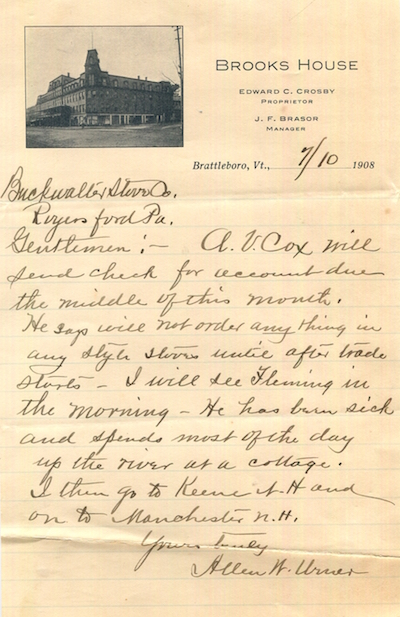 BROOKS HOUSE
EDWARD C. CROSBY
PROPRIETOR
J. F. BRASOR
MANAGER
Brattleboro, Vt., 7/10 1908
Buckwalter Stove Co.
Royersford Pa.
Gentlemen :- A. V. Cox will
send check for account due
the middle of this month.
He says will not order anything in
any style stoves until after trade
starts - I will see Fleming in
the morning - He has been sick
and spends most of the day
up the river at a cottage.
I then go to Keene N.H and
on to Manchester N.H.
Yours truly
Allen W. Urner